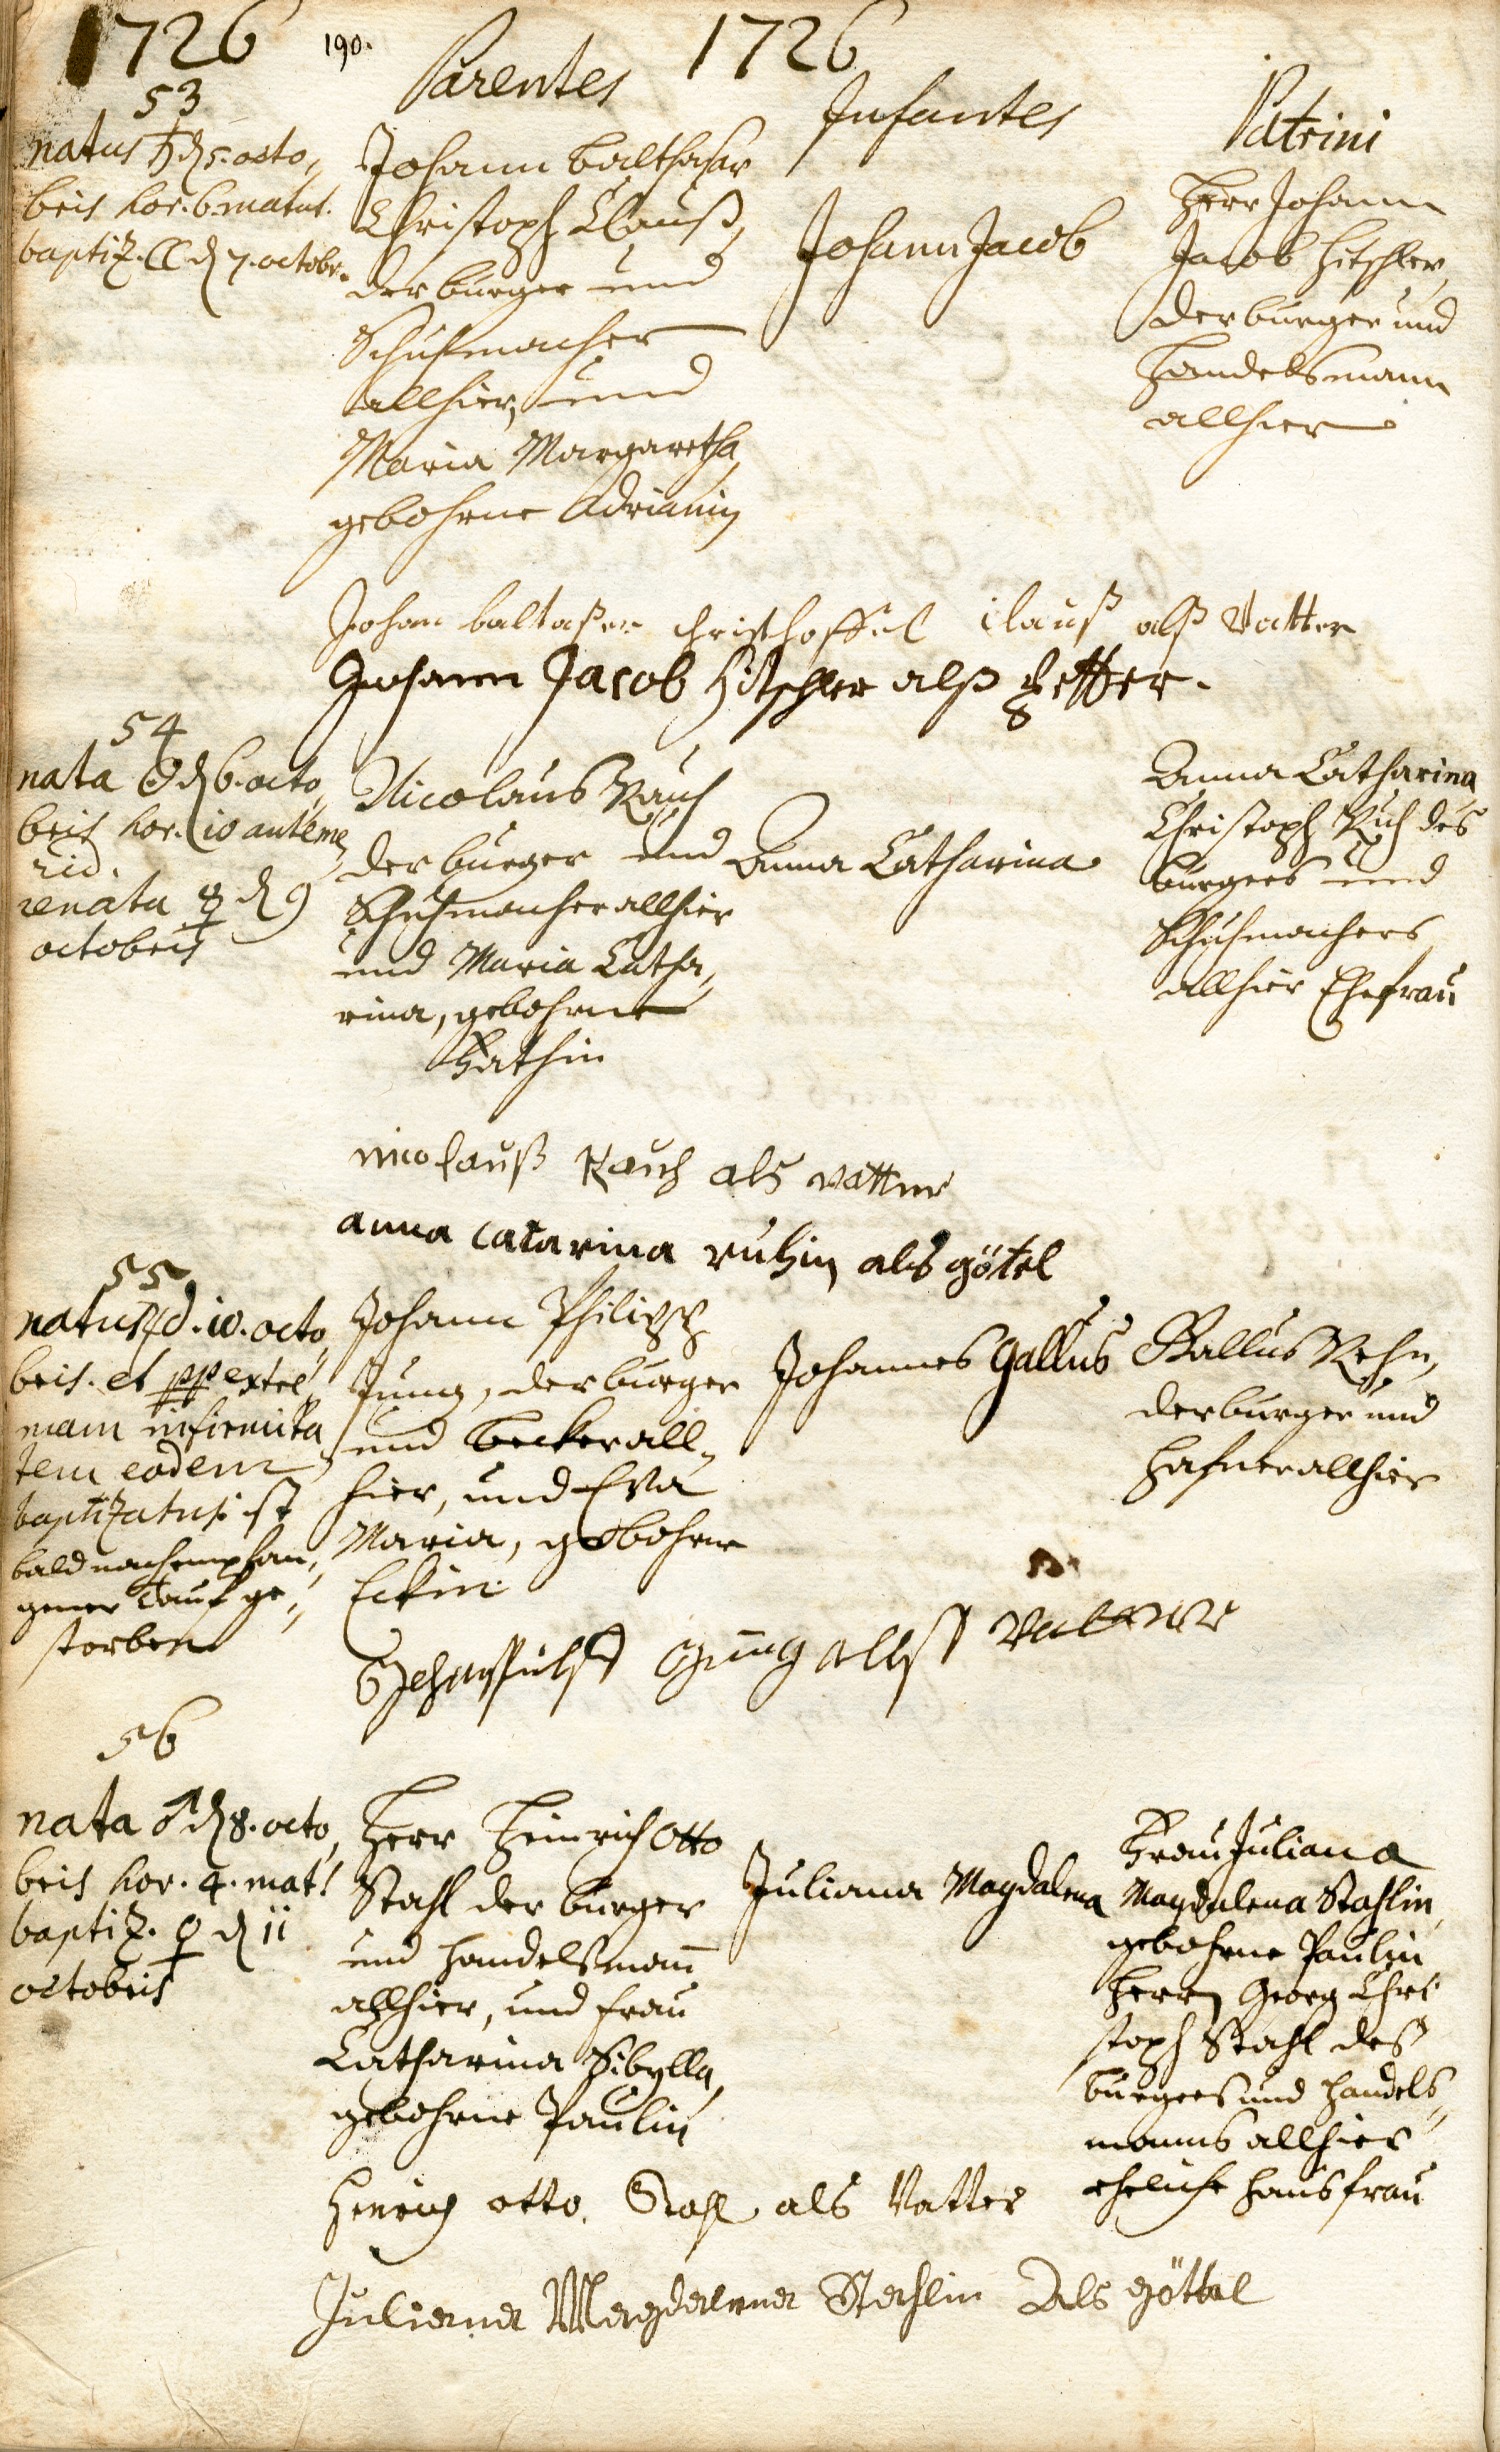 1726 190. 1726
Parentes Infantes Patrini
53
natus ♄ d 5. octo„
bris hor. 6. matut.
baptiz. ☾ d 7. octobr.
Johann Balthasar
Christoph Clauß,
der burger und
Schuhmacher
allhier, und
Maria Margaretha,
gebohrne Adrianin
Johann Jacob
Herr Johann
Jacob Hitschler,
der burger und
Handelsmann
allhier
Johan baltaßer christhoffel Clauß alß Vatter
Johann Jacob Hitschler alß Petter.
54
nata ☉ d 6. octo„
bris hor. 10 ante me„
rid.
renata ☿ d 9
octobris
Nicolaus Rauch
der burger und
Schuhmacher allhier
und Maria Catha„
rina, gebohrne
Bathin
Anna Catharina
Anna Catharina
Christoph Ruh des
burgers und
Schuhmachers
allhier Ehefrau
nicolauß Rauch als vatter
anna catarina ruhin als götel
55
natus ♃ d. 10. octo„
bris. et pp extre„
mam infirmita„
tem eodem
baptizatus. ist
bald nach empfan„
gener Tauf ge„
storben
Johann Philipp
Jung, der burger
und becker all„
hier, und Eva
Maria, gebohrne
Eckin
Johannes Gallus
Gallus Rehn,
der burger und
Hafner allhier
Jung allst Vatter
56
nata ♂ d 8. octo„
bris hor. 4. mat.
baptiz. ♀ d 11
octobris
Herr Heinrich Otto
Stahl der burger
und Handelsmañ
allhier, und Frau
Catharina Sibylla,
gebohrne Paulin
Juliana Magdalena
Frau Juliana
Magdalena Stahlin,
gebohrne Paulin
Herrn Georg Chri
stoph Stahl deß
burgers und Handels„
manns allhier
eheliche Hausfrau
Henrich otto. Stahl als Vatter
Juliana Magdalena Stahlin Als göttel